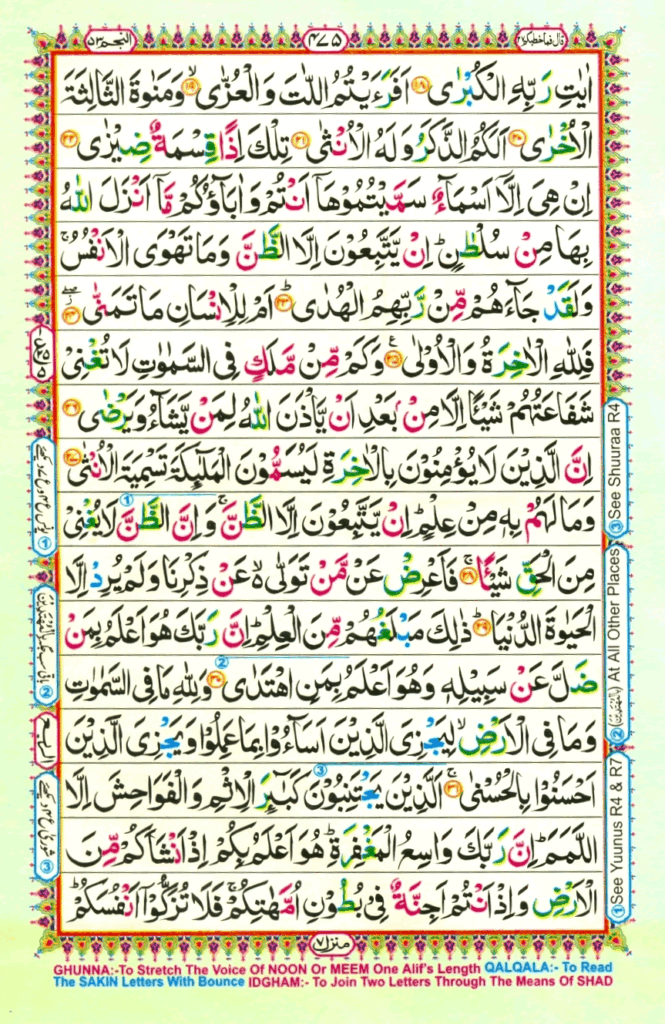 قال فما خطبكم ٢٧
٤٧٥
النجم ٥٣
اٰیٰتِ رَبِّهِ الْكُبْرٰى ١٨ اَفَرَءَیْتُمُ اللّٰتَ وَالْعُزّٰى ١٩ وَمَنٰوةَ الثَّالِثَةَ
الْاُخْرٰى ٢٠ اَلَكُمُ الذَّكَرُ وَلَهُ الْاُنْثٰى ٢١ تِلْكَ اِذًا قِسْمَةٌ ضِیْزٰى ٢٢
اِنْ هِیَ اِلَّاۤ اَسْمَآءٌ سَمَّیْتُمُوْهَاۤ اَنْتُمْ وَاٰبَآؤُكُمْ مَّاۤ اَنْزَلَ اللّٰهُ
بِهَا مِنْ سُلْطٰنٍ ؕ اِنْ یَّتَّبِعُوْنَ اِلَّا الظَّنَّ وَمَا تَهْوَى الْاَنْفُسُ ۚ
وَلَقَدْ جَآءَهُمْ مِّنْ رَّبِّهِمُ الْهُدٰى ؕ ٢٣ اَمْ لِلْاِنْسَانِ مَا تَمَنّٰى ٢٤
فَلِلّٰهِ الْاٰخِرَةُ وَالْاُوْلٰى ٢٥ وَكَمْ مِّنْ مَّلَكٍ فِی السَّمٰوٰتِ لَا تُغْنِیْ
شَفَاعَتُهُمْ شَیْـًٔا اِلَّا مِنْۢ بَعْدِ اَنْ یَّاْذَنَ اللّٰهُ لِمَنْ یَّشَآءُ وَیَرْضٰى ٢٦
اِنَّ الَّذِیْنَ لَا یُؤْمِنُوْنَ بِالْاٰخِرَةِ لَیُسَمُّوْنَ الْمَلٰٓىِٕكَةَ تَسْمِیَةَ الْاُنْثٰى ٢٧
وَمَا لَهُمْ بِهٖ مِنْ عِلْمٍ ؕ اِنْ یَّتَّبِعُوْنَ اِلَّا الظَّنَّ ۚ وَاِنَّ الظَّنَّ لَا یُغْنِیْ
مِنَ الْحَقِّ شَیْـًٔا ۚ ٢٨ فَاَعْرِضْ عَنْ مَّنْ تَوَلّٰى ۙ۬ عَنْ ذِكْرِنَا وَلَمْ یُرِدْ اِلَّا
الْحَیٰوةَ الدُّنْیَا ؕ ٢٩ ذٰلِكَ مَبْلَغُهُمْ مِّنَ الْعِلْمِ ؕ اِنَّ رَبَّكَ هُوَ اَعْلَمُ بِمَنْ
ضَلَّ عَنْ سَبِیْلِهٖ وَهُوَ اَعْلَمُ بِمَنِ اهْتَدٰى ٣٠ وَلِلّٰهِ مَا فِی السَّمٰوٰتِ
وَمَا فِی الْاَرْضِ ۙ لِیَجْزِیَ الَّذِیْنَ اَسَآءُوْا بِمَا عَمِلُوْا وَیَجْزِیَ الَّذِیْنَ
اَحْسَنُوْا بِالْحُسْنٰى ۚ ٣١ اَلَّذِیْنَ یَجْتَنِبُوْنَ كَبٰٓىِٕرَ الْاِثْمِ وَالْفَوَاحِشَ اِلَّا
اللَّمَمَ ؕ اِنَّ رَبَّكَ وَاسِعُ الْمَغْفِرَةِ ؕ هُوَ اَعْلَمُ بِكُمْ اِذْ اَنْشَاَكُمْ مِّنَ
الْاَرْضِ وَاِذْ اَنْتُمْ اَجِنَّةٌ فِیْ بُطُوْنِ اُمَّهٰتِكُمْ ۚ فَلَا تُزَكُّوْۤا اَنْفُسَكُمْ ؕ
منزل ٧
③ See Shuuraa R4
② At All Other Places
① See Yuunus R4 & R7
GHUNNA:-To Stretch The Voice Of NOON Or MEEM One Alif's Length QALQALA:- To Read
The SAKIN Letters With Bounce IDGHAM:- To Join Two Letters Through The Means Of SHAD